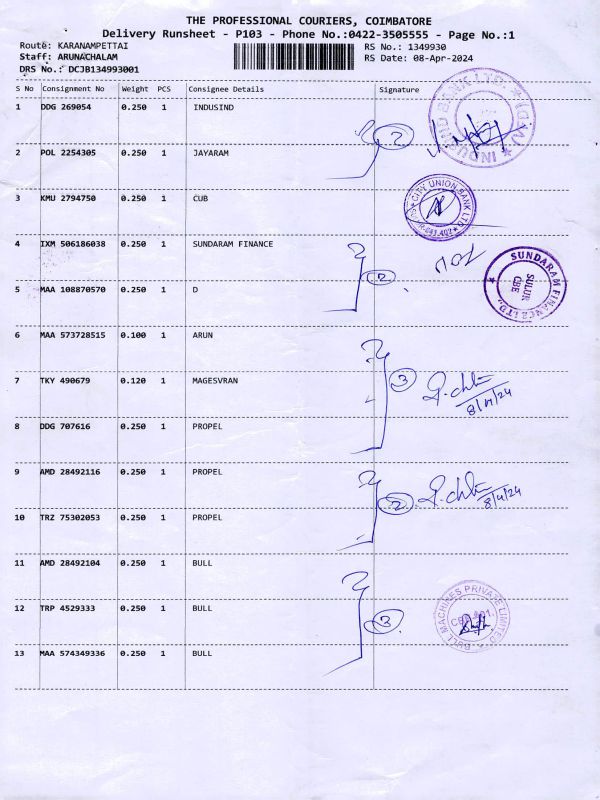 THE PROFESSIONAL COURIERS, COIMBATORE
Delivery Runsheet - P103 - Phone No.:0422-3505555 - Page No.:1
Route: KARANAMPETTAI
RS No.: 1349930
Staff: ARUNACHALAM
RS Date: 08-Apr-2024
DRS No.: DCJB134993001
S No Consignment No Weight PCS Consignee Details Signature
1 DDG 269054 0.250 1 INDUSIND
2
INDUSIND BANK LTD.
2 POL 2254305 0.250 1 JAYARAM
3 KMU 2794750 0.250 1 CUB
CITY UNION BANK LTD.
4 IXM 506186038 0.250 1 SUNDARAM FINANCE
2
SUNDARAM FINANCE LTD.,
SULUR
CBE
5 MAA 108870570 0.250 1 D
6 MAA 573728515 0.100 1 ARUN
3
7 TKY 490679 0.120 1 MAGESVRAN
8/4/24
8 DDG 707616 0.250 1 PROPEL
9 AMD 28492116 0.250 1 PROPEL
2
8/4/24
10 TRZ 75302053 0.250 1 PROPEL
11 AMD 28492104 0.250 1 BULL
12 TRP 4529333 0.250 1 BULL
3
BULL MACHINES PRIVATE LIMITED
13 MAA 574349336 0.250 1 BULL